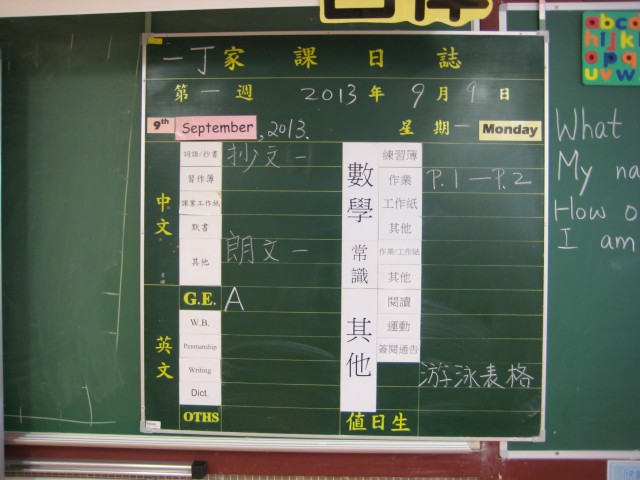 一丁家課日誌
第一週 2013年9月9日
9th September, 2013. 星期一 Monday
中文
詞語/抄書 抄文一
習作簿
課業工作紙
默書
其他 朗文一
G.E. A
英文
W.B.
Penmanship
Writing
Dict.
OTHS
數學
練習簿
作業 P.1—P.2
工作紙
其他
常識
作業/工作紙
其他
其他
閱讀
運動
簽閱通告
游泳表格
值日生
abc
hijk
opq
uvw
What
My na
How o
I am